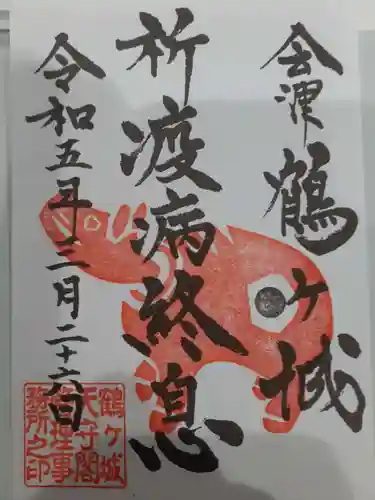 会津
鶴ヶ城
祈疫病終息
令和五年二月二十六日
鶴ヶ城
天守閣
管理事
務所之印